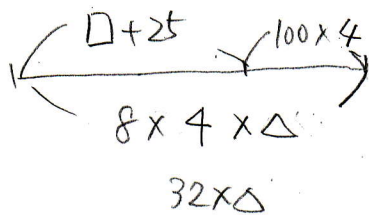 □+25 100×4
8×4×△
32×△